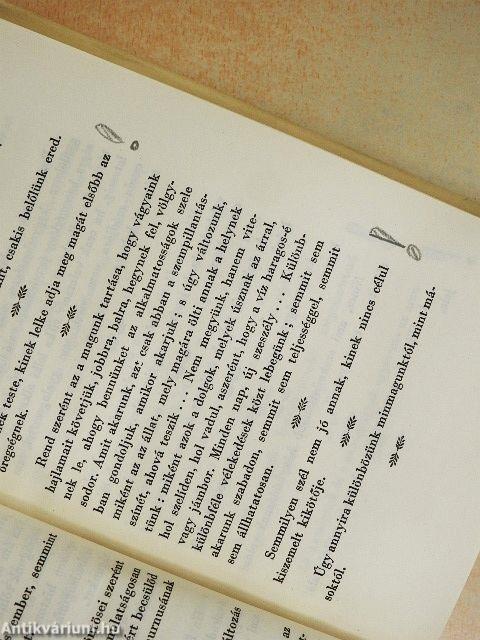 nt, csakis belőlünk ered.
nek teste, kinek lelke adja meg magát elsőbb az
öregségnek.
Rend szerént az a magunk tartása, hogy vágyaink
hajlamait követjük, jobbra, balra, hegynek fel, völgy-
nek le, ahogy bennünket az alkalmatosságok szele
sodor. Amit akarunk, azt csak abban a szempillantás-
ban gondoljuk, amikor akarjuk; s úgy változunk,
miként az az állat, mely magára ölti annak a helynek
színét, ahová teszik ... Nem megyünk, hanem vite-
tünk; miként azok a dolgok, melyek úsznak az árral,
hol szelíden, hol vadul, aszerént, hogy a víz haragos-é
vagy jámbor. Minden nap, új szeszély ... Különb-
különbféle vélekedések közt lebegünk; semmit sem
akarunk szabadon, semmit sem teljességgel, semmit
sem állhatatosan.
Semmilyen szél nem jó annak, kinek nincs célul
kiszemelt kikötője.
Úgy annyira különbözünk minmagunktól, mint má-
soktól.
ember, semmint
ősei szerént
dalatságosan
ért becsülöd
urnusának
változás
az
Antikvárium.hu